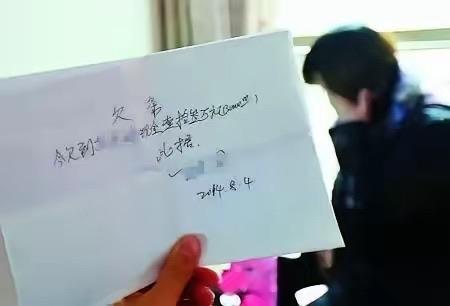 欠条
今欠到 现金壹拾叁万元(130000元)
此据.
2014.8.4